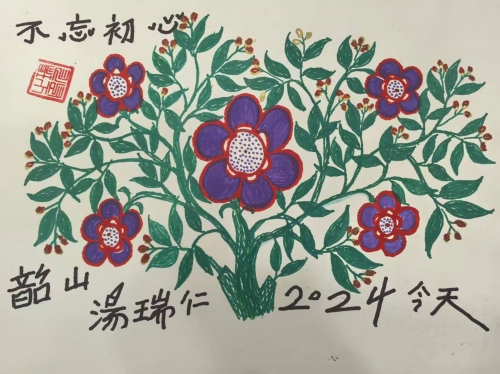 不忘初心
韶山
湯瑞仁
2024今天